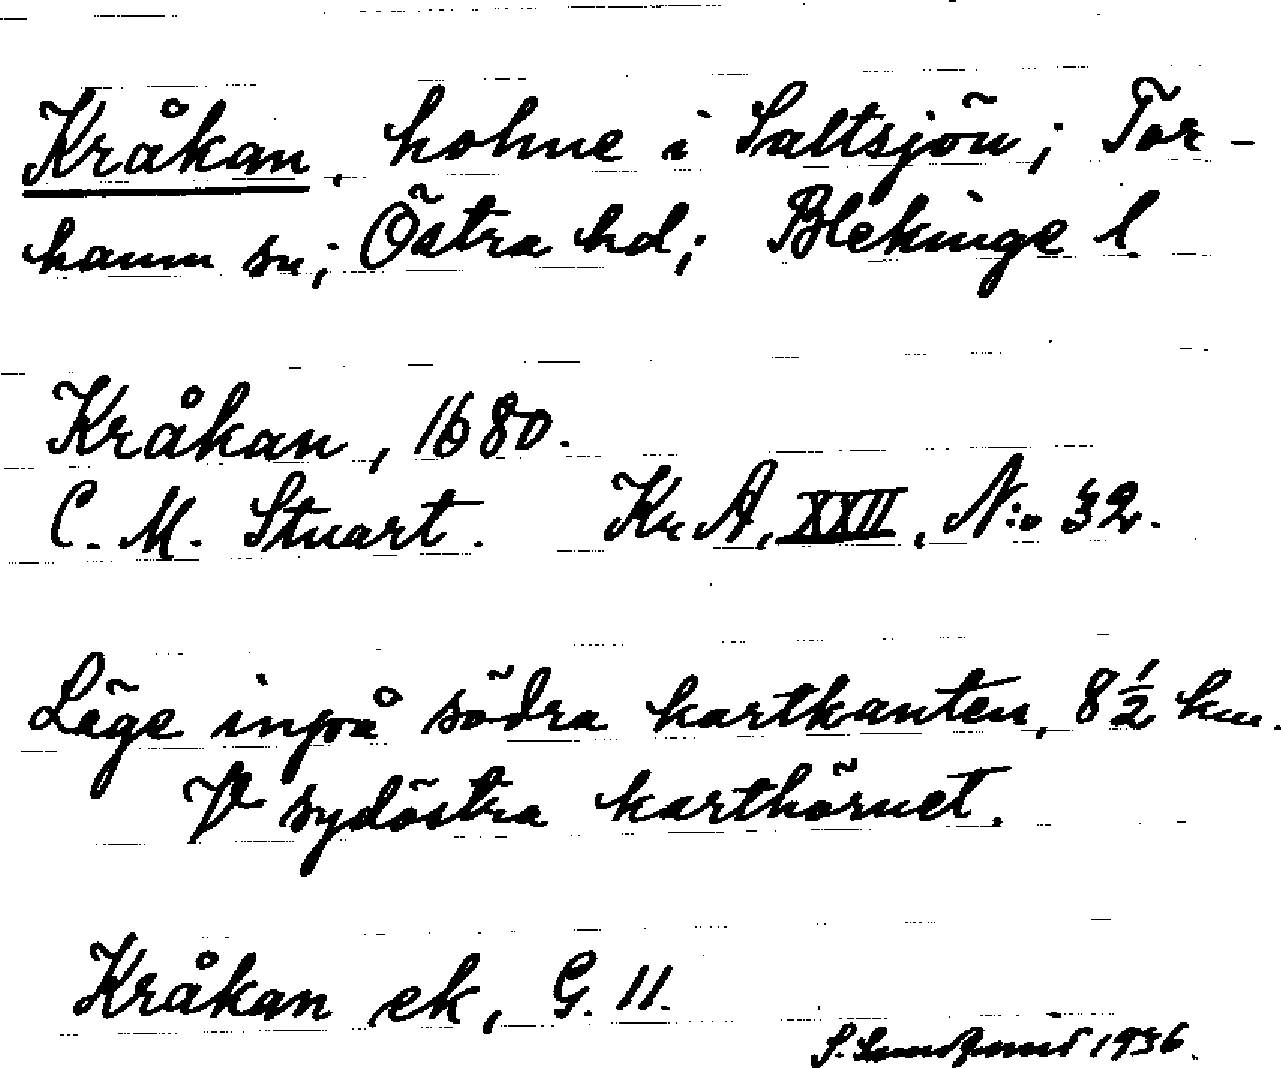 Kråkan, holme i Saltsjön; Tor-
hamn sn; Östra hd; Blekinge l.
Kråkan, 1680.
C. M. Stuart. Kr A, XXII, N:o 32.
Läge inpå södra kartkanten, 8 1/2 km.
V sydöstra karthörnet.
Kråkan ek, G. 11.
S. 1936.